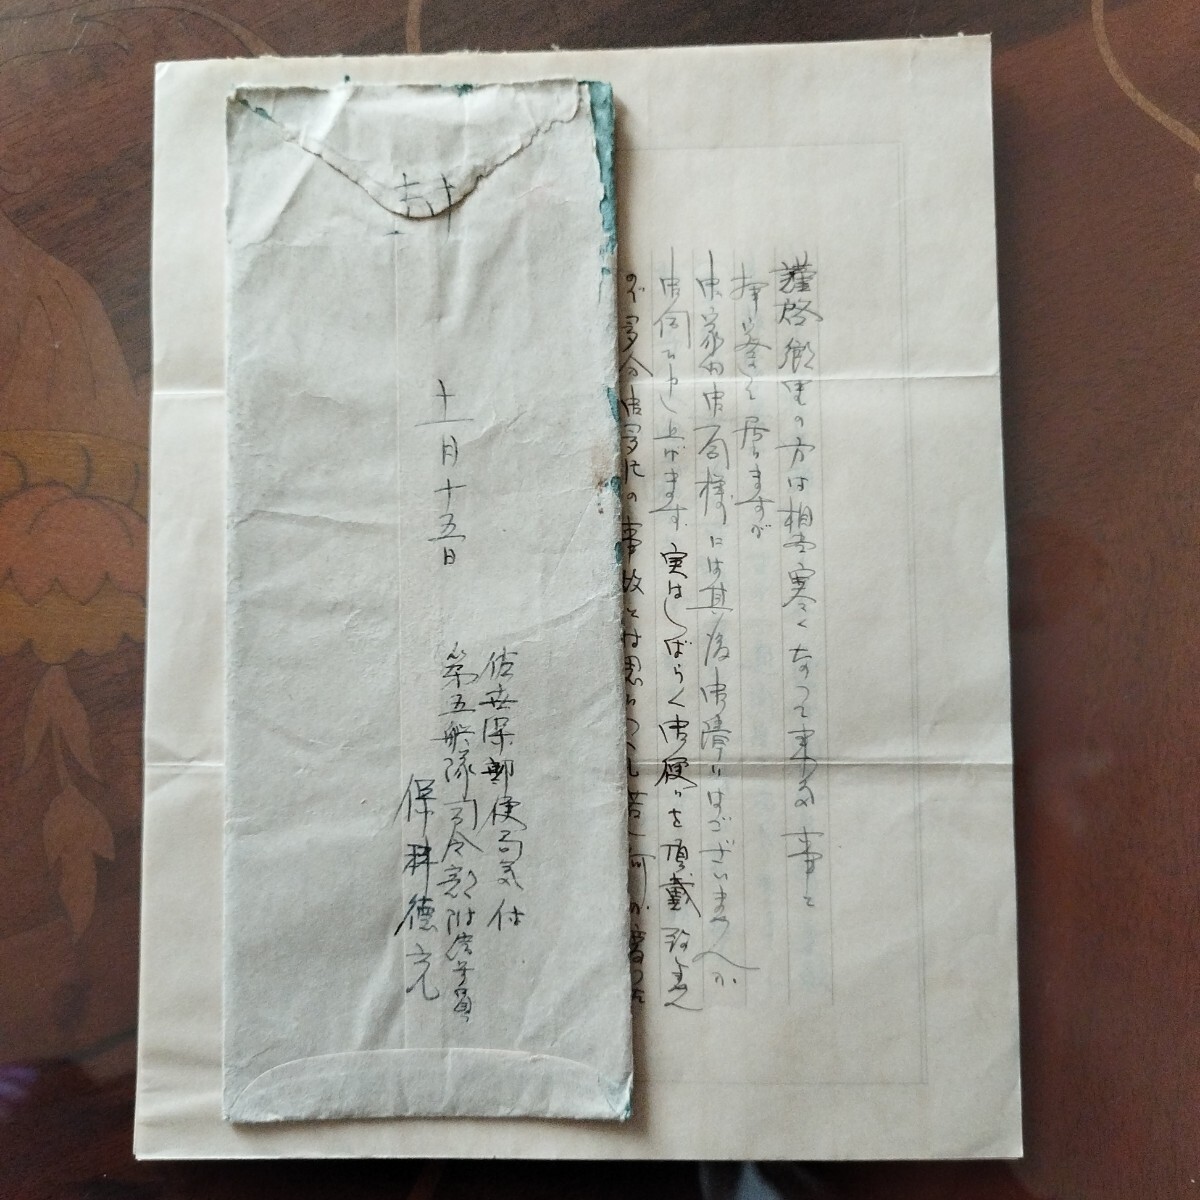 謹啓郷里の方は相当寒くなって来た事と
拝察して居りますが
御家内御一同様には其後御障りはございませんか
御伺ひ申し上げます 実はしばらく御便りを頂戴致しません
ので多分御多忙の事故とは思ひつゝも若し何か変った
封
十一月十五日
佐世保郵便局気付
第五艦隊司令部附
保科德